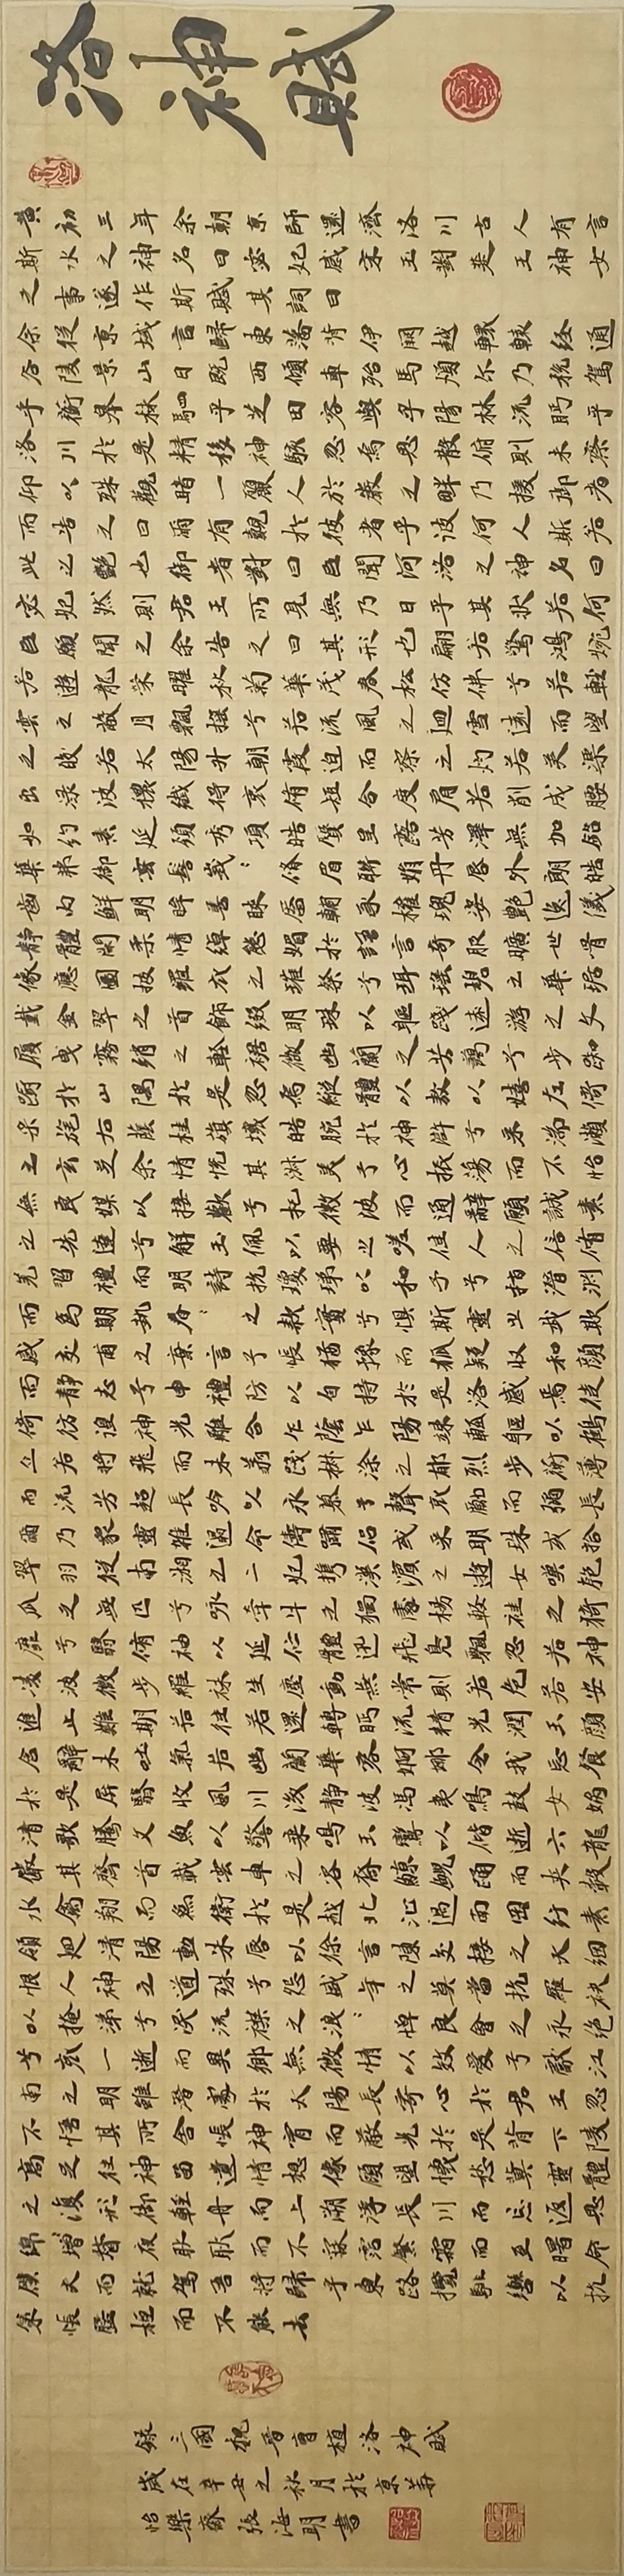 洛神賦
黄初三年余朝京師還濟洛川古人有言
斯水之神名曰宓妃感宋玉對楚王神女
之事遂作斯賦其詞曰
余從京域言歸東藩背伊闕越轘轅經通
谷陵景山日既西傾車殆馬煩尔乃税駕
乎蘅皋秣駟乎芝田容與乎陽林流眄乎
洛川於是精移神駭忽焉思散俯則未察
仰以殊觀睹一麗人於巖之畔乃援御者
而告之曰爾有覿於彼者乎彼何人斯若
此之艷也御者對曰臣聞河洛之神名曰
宓妃然則君王所見無乃日乎其狀若何
臣願聞之余告之曰其形也翩若驚鴻婉
若遊龍榮曜秋菊華茂春松仿佛兮若輕
雲之蔽月飄摇兮若流風之迴雪遠而望
之皎若太陽升朝霞迫而察之灼若芙渠
出渌波穠纖得衷脩短合度肩若削成腰
如約素延頸秀項皓質呈露芳澤無加鉛
華弗御雲髻峩峩脩眉聯娟丹唇外朗皓
齒内鮮明眸善睞靨輔承權瑰姿艷逸儀
静體閑柔情綽態媚於語言奇服曠世骨
像應圖披羅衣之璀粲兮珥瑶碧之華琚
戴金翠之首飾綴明珠以耀軀踐遠游之文
履曳霧綃之輕裾微幽蘭之芳藹兮步踟
蹰於山隅於是忽焉縱體以遨以嬉左倚
采旄右蔭桂旗攘皓腕於神滸兮采湍瀨
之玄芝余情悦其淑美兮心振蕩而不怡
無良媒以接歡兮托微波而通辭願誠素
之先達兮解玉佩以要之嗟佳人之信脩
羌習禮而明詩抗瓊珶以和予兮指潛淵
而為期執眷眷之款實兮懼斯靈之我欺
感交甫之棄言兮悵猶豫而狐疑收和顔
而静志兮申禮防以自持於是洛靈感焉徙
倚彷徨神光離合乍陰乍陽竦輕軀以鶴
立若將飛而未翔踐椒塗之郁烈步蘅薄
而流芳超長吟以永慕兮聲哀厲而彌長
爾乃衆靈雜遝命儔嘯侣或采明珠或拾
翠羽從南湘之二妃攜漢濱之游女嘆匏
瓜之無匹兮詠牽牛之獨處揚輕袿之猗
靡兮翳脩袖以延佇體迅飛鳧飄忽若神
凌波微步羅襪生塵動無常則若危若安
進止難期若往若還轉眄流精光潤玉顔
含辭未吐氣若幽蘭華容婀娜令我忘餐
於是屏翳收風川后静波馮夷鳴鼓女媧
清歌騰文魚以警乘鳴玉鸞以偕逝六龍
儼其齊首載雲車之容裔鯨鯢踴而夾轂
水禽翔而為衛於是越北沚過南岡紆素
領迴清陽動朱唇以徐言陳交接之大綱
恨人神之道殊兮怨盛年之莫當抗羅袂
以掩涕兮淚流襟之浪浪悼良會之永絶
兮哀一逝而異鄉無微情以效愛兮獻江
南之明璫雖潛處於太陰長寄心於君王忽
不悟其所舍悵神宵而蔽光於是背下陵
高足往神留遺情想像顧望懷愁冀靈體
之復形御輕舟而上溯浮長川而忘返思
綿綿而增慕夜耿耿而不寐霑繁霜而至曙命
僕夫而就駕吾將歸乎東路攬騑轡以抗
策悵盤桓而不能去
錄三國魏晉曹植洛神賦
歲在辛丑之秋月於京華
怡樂齋張海明書